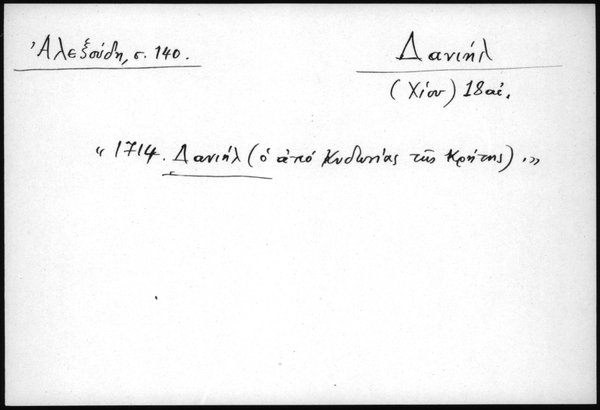 Ἀλεξούδη, σ. 140.
Δανιήλ
(Χίου) 18 αἰ.
« 1714. Δανιήλ (ὁ ἀπό Κυδωνίας τῆς Κρήτης) .»